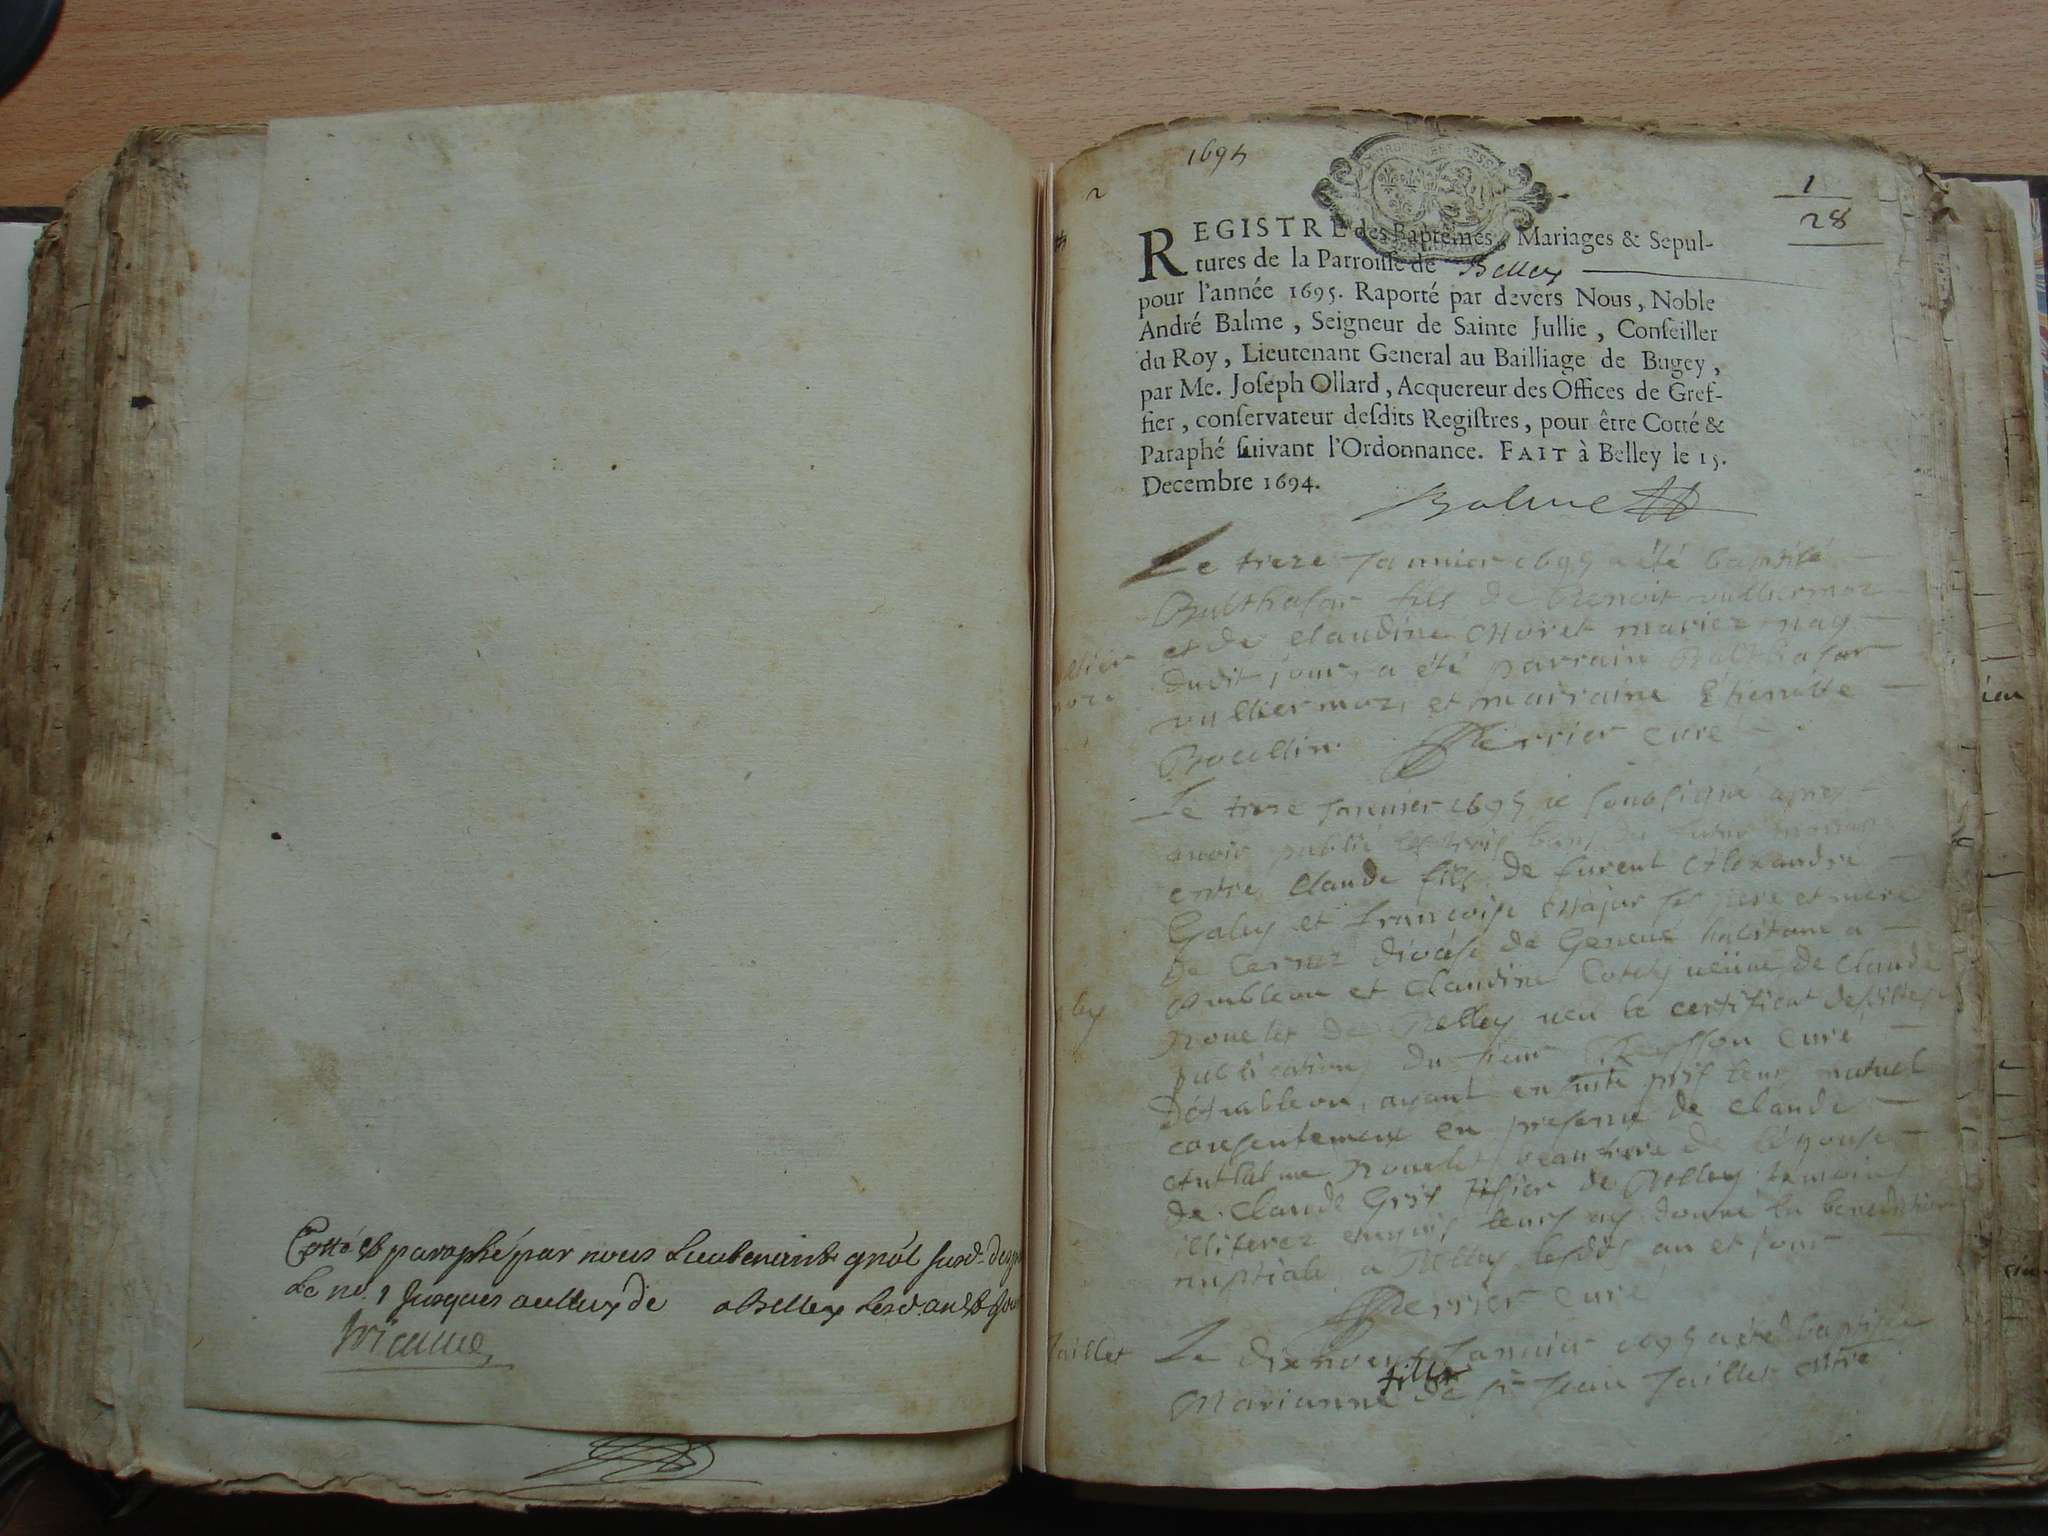 Cotté & paraphé par nous Lieutenant gnal susd.
Le no. 1 Jusques a a Belley
1694
1
28
REGISTRE des Baptêmes, Mariages & Sepul-
tures de la Parroisse de Belley
pour l'année 1695. Raporté par devers Nous, Noble
André Balme, Seigneur de Sainte Jullie, Conseiller
du Roy, Lieutenant General au Bailliage de Bugey,
par Me. Joseph Ollard, Acquereur des Offices de Gref-
fier, conservateur desdits Registres, pour être Cotté &
Paraphé suivant l'Ordonnance. FAIT à Belley le 15.
Decembre 1694.
Balme
Le treze Janvier 1695 a été baptisé
Balthasar fils de Benoit vulliermoz
et de Claudine Moret mariez nay
dudit jour, a été parrain Balthasar
vulliermoz, et marraine Etiennette
Boullin. Perrier curé
Le treze Janvier 1695 ie soubsigné apres
avoir publié les trois bans du futur mariage
entre Claude fils de furent Alexandre
Galey et Françoise Major ses pere et mere
de diocese de Geneve habitant a
et Claudine veüve de Claude
Rouelet de Belley veu le certificat desdittes
publications du sieur curé
ayant en suite pris leurs mutuel
consentement en presence de Claude
Anthelme Rouelet beaufrere de l'epouse
de Claude Gris de Belley temoins
illiterez leurs ay donné la benediction
nuptiale a Belley lesdits an et jour
Perrier curé
Jaillet
Le dixneuf Janvier 1695 a été baptisée
Marianne fille de Sr Jean Jaillet